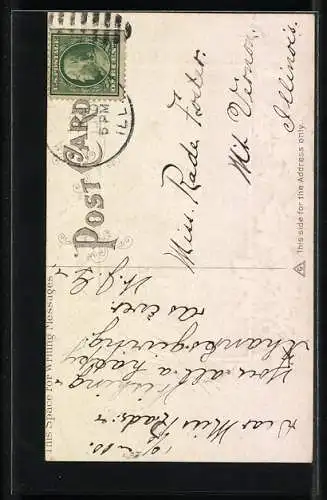 This Space for Writing Messages
POST CARD
This side for the Address only.
5 PM
ILL
Dear Miss
Wishing
You all a happy
Thanksgiving.
As ever
Miss. Rade
Mt. Vernon
Illinois.